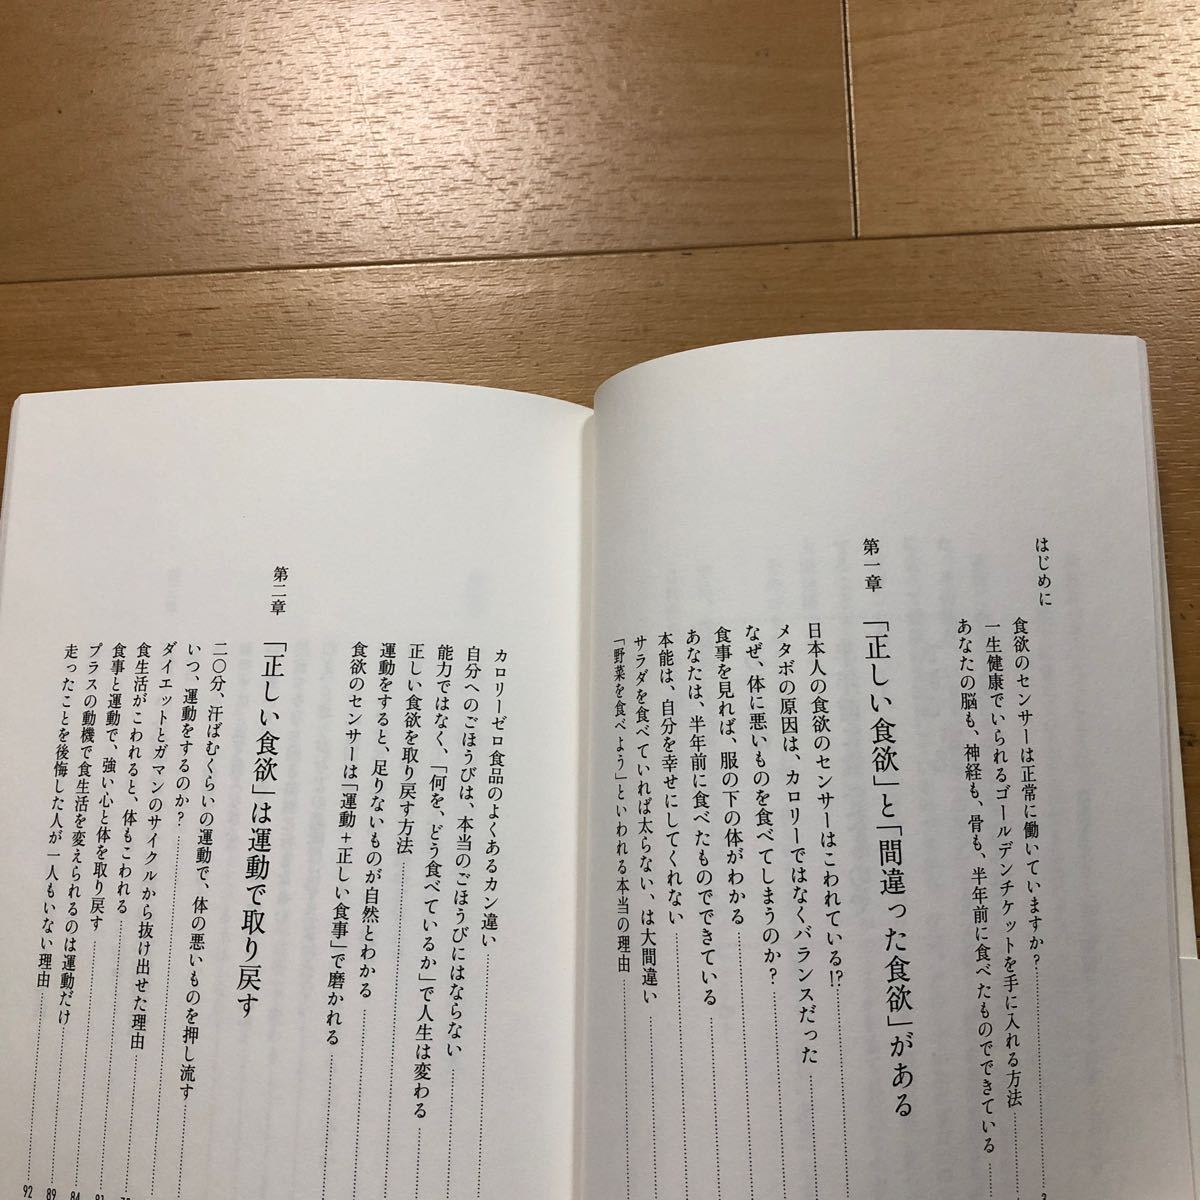 はじめに
食欲のセンサーは正常に働いていますか?
一生健康でいられるゴールデンチケットを手に入れる方法
あなたの脳も、神経も、骨も、半年前に食べたものでできている
3
第一章 「正しい食欲」と「間違った食欲」がある
日本人の食欲のセンサーはこわれている!?
メタボの原因は、カロリーではなくバランスだった
なぜ、体に悪いものを食べてしまうのか?
食事を見れば、服の下の体がわかる
あなたは、半年前に食べたものでできている
本能は、自分を幸せにしてくれない
サラダを食べていれば太らない、は大間違い
「野菜を食べよう」といわれる本当の理由
カロリーゼロ食品のよくあるカン違い
自分へのごほうびは、本当のごほうびにはならない
能力ではなく、「何を、どう食べているか」で人生は変わる
正しい食欲を取り戻す方法
運動をすると、足りないものが自然とわかる
食欲のセンサーは「運動+正しい食事」で磨かれる
第二章 「正しい食欲」は運動で取り戻す
二〇分、汗ばむくらいの運動で、体の悪いものを押し流す
いつ、運動をするのか?
ダイエットとガマンのサイクルから抜け出せた理由
食生活がこわれると、体もこわれる
食事と運動で、強い心と体を取り戻す
プラスの動機で食生活を変えられるのは運動だけ
走ったことを後悔した人が一人もいない理由
84
89
92